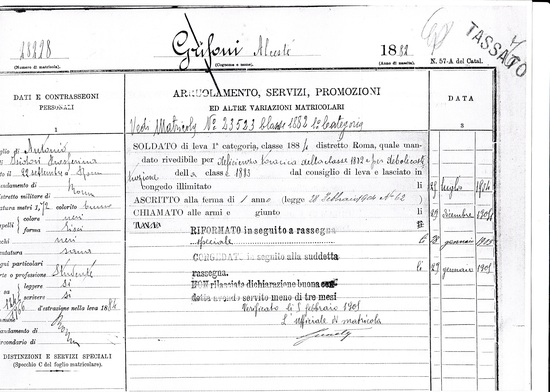 28228
Grifoni Alceste
1882
(Numero di matricola).
(Cognome e nome).
(Anno di nascita).
N. 57-A del Catal.
TASSATO
DATI E CONTRASSEGNI
PERSONALI
1
ARRUOLAMENTO, SERVIZI, PROMOZIONI
ED ALTRE VARIAZIONI MATRICOLARI
DATA
3
Vedi Matricola No 23523 Classe 1882 1a Categoria
SOLDATO di leva 1a categoria, classe 188 distretto Roma, quale mandato
rivedibile per deficienza toracica della classe 1882 e per debole costituzione
della classe 1883 dal consiglio di leva e lasciato in
congedo illimitato li luglio
ASCRITTO alla ferma di 1 anno (legge 28 Febbraio 1904 No 62)
CHIAMATO alle armi e giunto li 29 dicembre
RIFORMATO in seguito a rassegna
speciale li 28 gennaio
CONGEDATO in seguito alla suddetta
rassegna. li 29 gennaio
NON rilasciato dichiarazione buona condotta
avendo servito meno di tre mesi
Verificato li febbraio
L'ufficiale di matricola
figlio di Antonio
settembre
mandamento di Roma
distretto militare di Roma
statura metri 1,72 colorito bruno
capelli colore neri
forma lisci
occhi neri
segni particolari
arte o professione Studente
leggere si
scrivere si
d'estrazione nella leva 188
mandamento di
circondario di
DISTINZIONI E SERVIZI SPECIALI
(Specchio C del foglio matricolare).